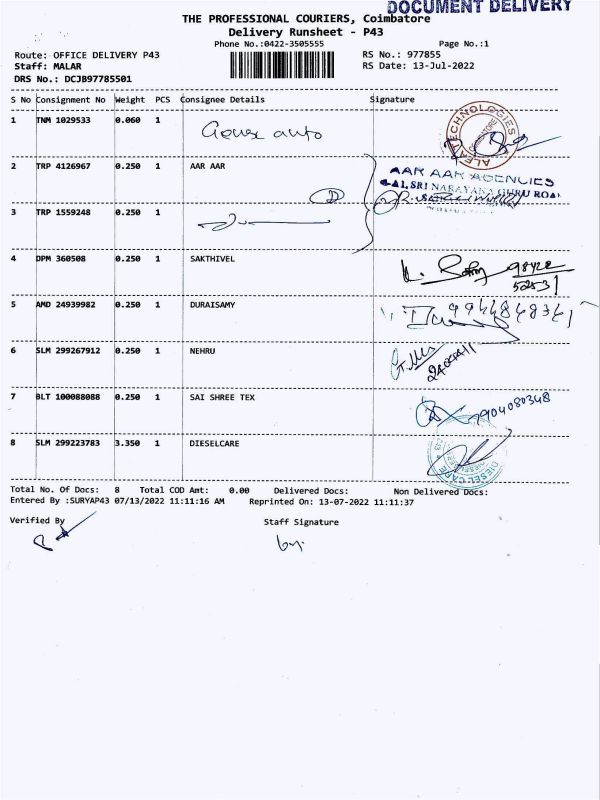 DOCUMENT DELIVERY
THE PROFESSIONAL COURIERS, Coimbatore
Delivery Runsheet - P43
Phone No.:0422-3505555 Page No.:1
Route: OFFICE DELIVERY P43 RS No.: 977855
Staff: MALAR RS Date: 13-Jul-2022
DRS No.: DCJB97785501
S No Consignment No Weight PCS Consignee Details Signature
1 TNM 1029533 0.060 1 auto
ALFA TECHNOLOGIES COIMBATORE
2 TRP 4126967 0.250 1 AAR AAR
AAR AAR AGENCIES
SRI NARAYANA GURU ROAD
3 TRP 1559248 0.250 1
4 DPM 360508 0.250 1 SAKTHIVEL 98422
52531
5 AMD 24939982 0.250 1 DURAISAMY
6 SLM 299267912 0.250 1 NEHRU
7 BLT 100088088 0.250 1 SAI SHREE TEX 9904080348
8 SLM 299223783 3.350 1 DIESELCARE
DIESEL CARE
Total No. Of Docs: 8 Total COD Amt: 0.00 Delivered Docs: Non Delivered Docs:
Entered By :SURYAP43 07/13/2022 11:11:16 AM Reprinted On: 13-07-2022 11:11:37
Verified By Staff Signature